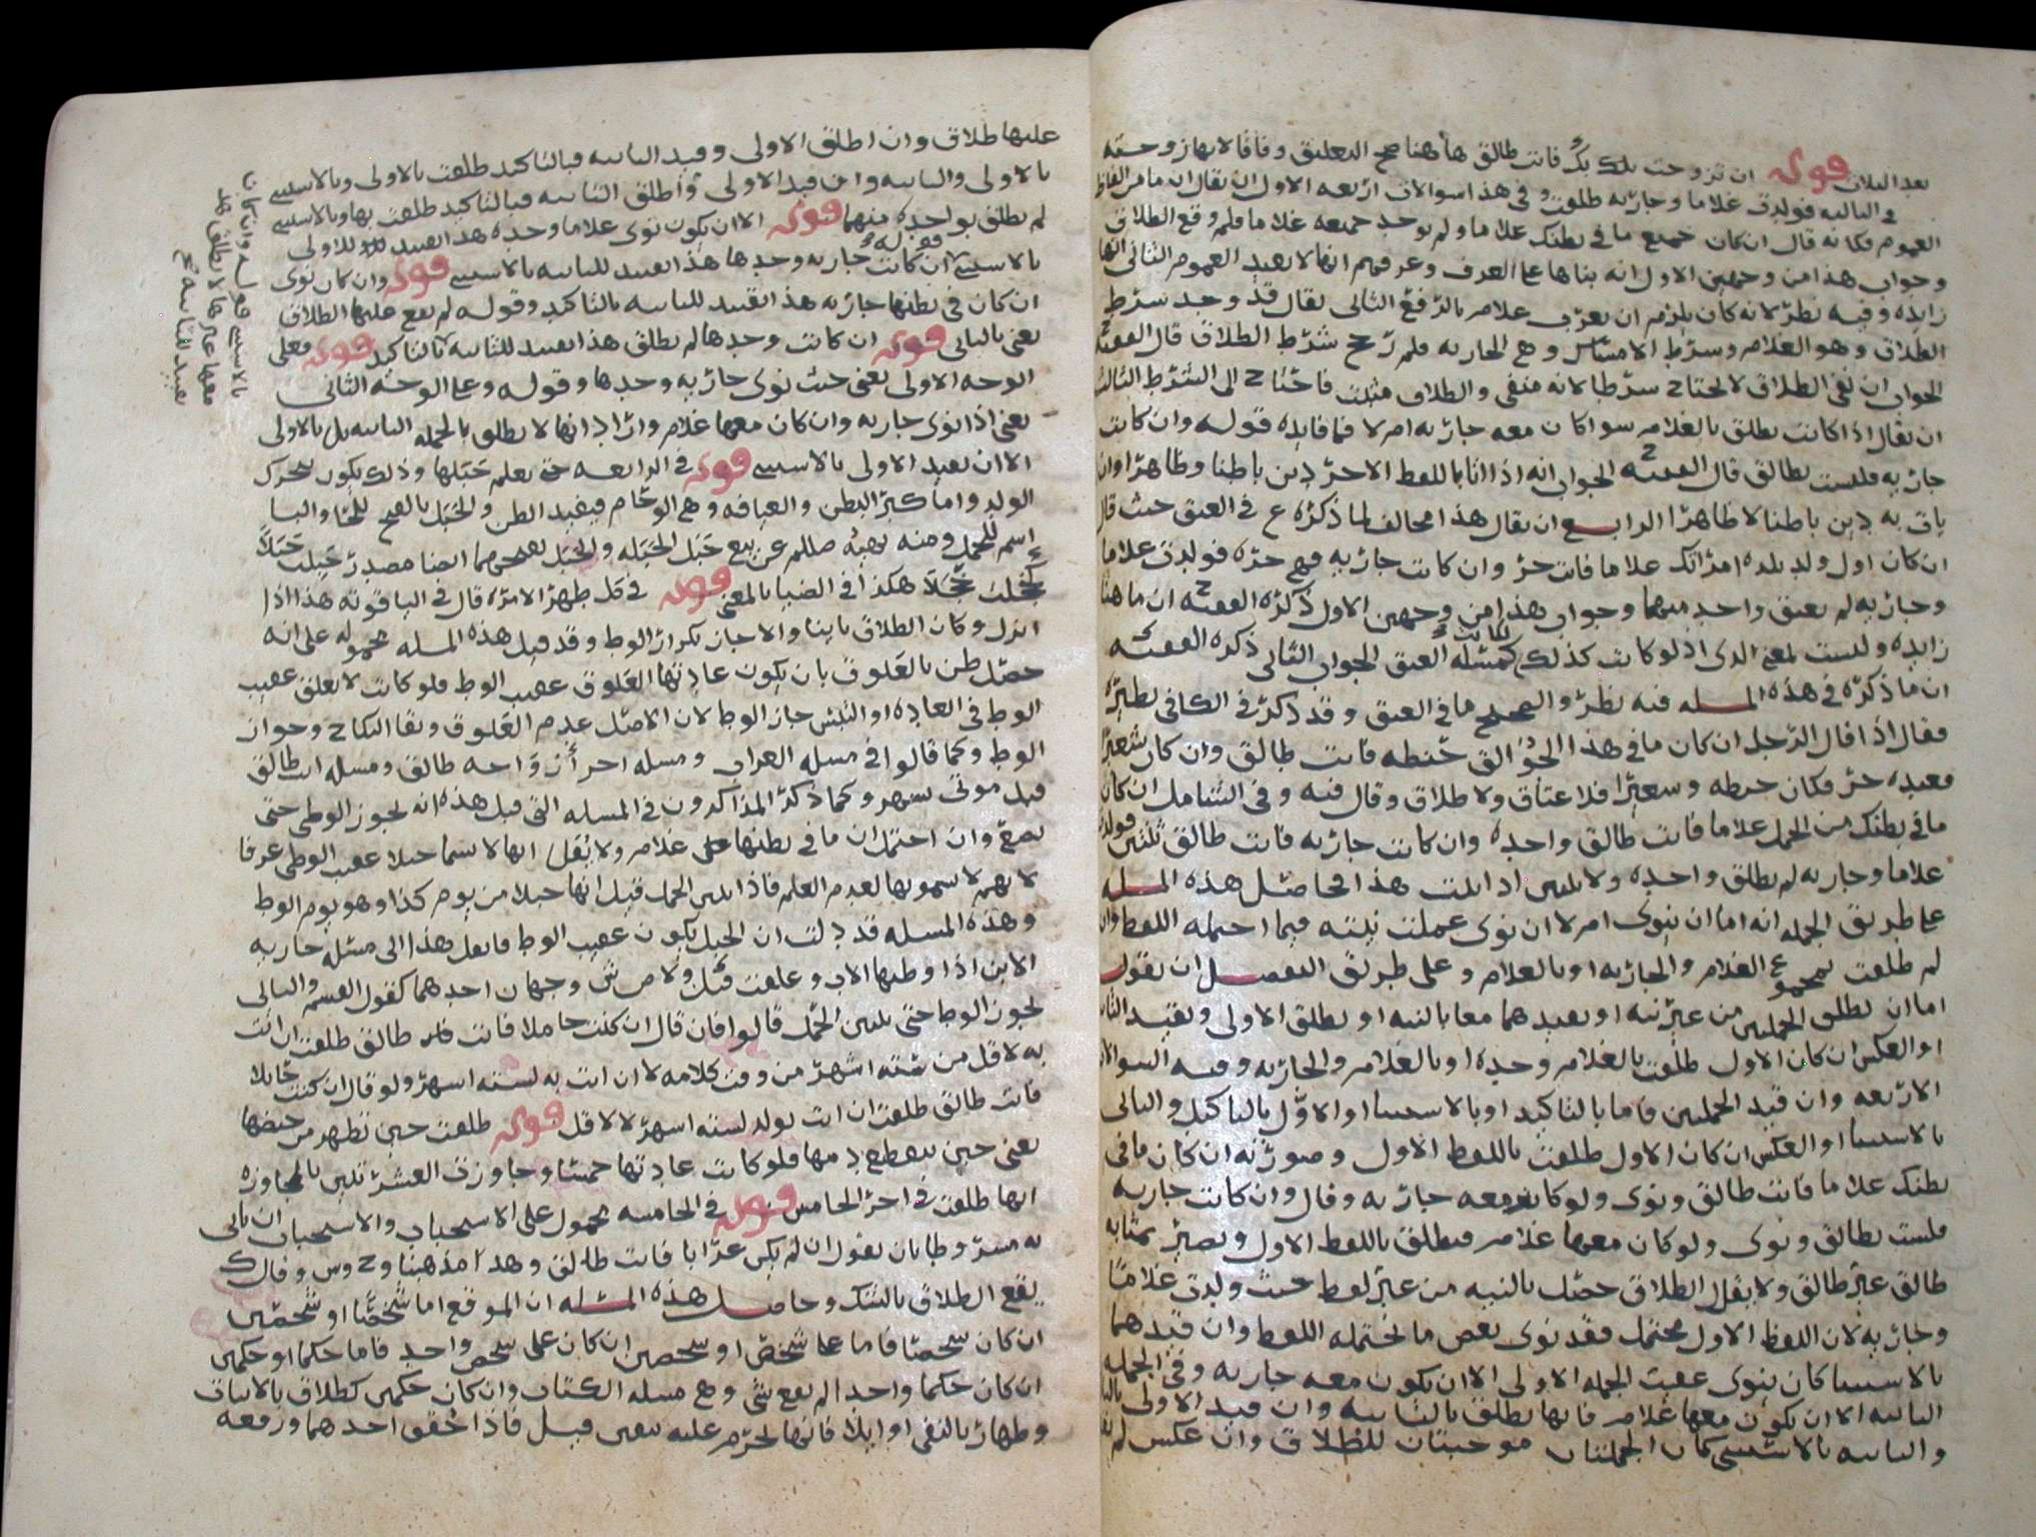 بعد الثلاث قوله ان تزوجت بك فانت طالق هاهنا صح التعليق وفاقا لانها زوجته
في الثانيه فولدت غلاما وجاريه طلقت وفي هذا سوالات اربعه الاول ان يقال ان ما من الفاظ
العموم فكانه قال ان كان جميع ما في بطنك غلاما ولم يوجد جميعه غلاما فلم وقع الطلاق
وجواب هذا من وجهين الاول انه بناها على العرف وعرفهم انها لا تفيد العموم الثاني انها
زايده وفيه نظر لانه كان يلزم ان يعرب غلام بالرفع الثاني يقال قد وجد شرط
الطلاق وهو الغلام وشرط الامساك وهي الجاريه فلم رجح شرط الطلاق قال الفقيه ح
الجواب ان نفي الطلاق لا يحتاج شرطا لانه منفي والطلاق مثبت فاحتاج الى الشرط الثالث
ان يقال اذا كانت تطلق بالغلام سوا كان معه جاريه ام لا فما فايدة قوله وان كانت
جاريه فلست بطالق قال الفقيه ح الجواب انه اذا اتا باللفظ الاخر دين باطنا وظاهرا وان لم
يات به دين باطنا لا ظاهرا الرابع ان يقال هذا مخالف لما ذكره ع في العتق حيث قال
ان كان اول ولد تلده امراتك غلاما فانت حر وان كانت جاريه فهي حره فولدت غلاما
وجاريه لم يعتق واحد منهما وجواب هذا من وجهين الاول ذكره الفقيه ح ان ما هنا
زايده وليست بمعنى الذي اذ لو كانت كذلك لكانت كمسئلة العتق الجواب الثاني ذكره الفقيه ح
ان ما ذكره في هذه المسله فيه نظر والصحيح ما في العتق وقد ذكر في الكافي نظيره
فقال اذا قال الرجل ان كان ما في هذا الجوالق حنطه فانت طالق وان كان شعيرا
فعبده حر فكان حنطه وشعيرا فلا عتاق ولا طلاق وقال فيه وفي الشامل ان كان
ما في بطنك من الحمل غلاما فانت طالق واحده وان كانت جاريه فانت طالق ثنتين فولدت
غلاما وجاريه لم تطلق واحده ولا ثلثين اذا ثبت هذا فحاصل هذه المسله
على طريق الجمله انه اما ان ينوي ام لا ان نوى عملت نيته فيما احتمله اللفظ وان
لم طلقت بمجموع الغلام والجاريه او بالغلام وعلى طريق التفصيل ان يقول
اما ان يطلق الجملتين من غير نيه او يقيدهما معا بالنيه او يطلق الاولى ويقيد الثانيه
او العكس ان كان الاول طلقت بالغلام وحده او بالغلام والجاريه وفيه السوالات
الاربعه وان قيد الجملتين فاما بالتاكيد او بالاستثنا او الاول بالتاكيد والثاني
بالاستثنا او العكس ان كان الاول طلقت باللفظ الاول وصورته ان كان ما في
بطنك غلاما فانت طالق ونوى ولو كان معه جاريه وقال وان كانت جاريه
فلست بطالق ونوى ولو كان معها غلام فيطلق باللفظ الاول ويصير بمثابه
طالق غير طالق ولا يقال الطلاق حصل بالنيه من غير لفظ حيث ولدت غلاما
وجاريه لان اللفظ الاول محتمل فقد نوى بعض ما يحتمله اللفظ وان قيدهما
بالاستثنا كان ينوي عقيب الجمله الاولى الا ان يكون معه جاريه وفي الجمله
الثانيه الا ان يكون معها غلام فانها تطلق بالثانيه وان قيد الاولى بالتاكيد
والثانيه بالاستثنى كان الجملتان موجبتان للطلاق وان عكس لم يقع
عليها طلاق وان اطلق الاولى وقيد الثانيه فبالتاكيد طلقت بالاولى وبالاستثنى
بالاولى والثانيه وان قيد الاولى واطلق الثانيه فبالتاكيد طلقت بها وبالاستثنى
لم تطلق بواحده منهما قوله الا ان يكون نوى غلاما وحده هذا القيد للاولى
بالاستثنا فقوله ان كانت جاريه وحدها هذا القيد للثانيه بالاستثنى قوله وان كان نوى
ان كان في بطنها جاريه هذا القيد للثانيه بالتاكيد وقوله لم يقع عليها الطلاق
يعني بالثاني قوله ان كانت وحدها لم تطلق هذا القيد للثانيه بالتاكيد قوله فعلى
الوجه الاولى يعني حيث نوى جاريه وحدها وقوله وعلى الوجه الثاني
يعني اذا نوى جاريه وان كان معها غلام واراد انها لا تطلق بالجمله الثانيه بل بالاولى
الا ان يقيد الاولى بالاستثنى قوله في الرابعه حتى يعلم حبلها وذلك يكون بتحرك
الولد واما كبر البطن والعيافه وهي الوحام فيفيد الظن والحبل بالفتح للحا والبا
اسم للحمل ومنه نهيه صللم عن بيع حبل الحبله والحبل بفتحهما ايضا مصدر حبلت حبلا
كخجلت خجلا هكذا في الضيا بالمعنى قوله في كل طهر الامره قال في الياقوته هذا اذا
انزل وكان الطلاق باينا والا جاز تكرار الوطا وقد قيل هذه المسله محموله على انه
حصل ظن بالعلوق بان يكون عادتها العلوق عقيب الوطا فلو كانت لا تعلق عقيب
الوطا في العاده او التبس جاز الوطا لان الاصل عدم العلوق وبقا النكاح وجواز
الوطا وكما قالوا في مسله الغراب ومسله اخر ازواجه طالق ومسله انت طالق
قبل موتى بشهر وكما ذكر المذاكرون في المسله التي قبل هذه انه يجوز الوطي حتى
تضع وان احتمل ان ما في بطنها غلام ولا يقال انها لا تسما حبلا عقيب الوطي عرفا
لانهم لا يسمونها لعدم العلم فاذا تبين الحمل قيل انها حبلا من يوم كذا وهو يوم الوطا
وهذه المسله قد دلت ان الحبل يكون عقيب الوطا فانقل هذا الى مسئله جاريه
الابن اذا وطئها الاب وعلقت قيل ولاص ش وجهان احدهما كقول القسم والثاني
يجوز الوطا حتى يتبين الحمل قالوا فان قال ان كنت حاملا فانت طالق طلقت ان اتت
به لاقل من سته اشهر من وقت كلامه لا ان اتت به لسته اشهر ولو قال ان كنت حائلا
فانت طالق طلقت ان اتت بولد لسته اشهر لا لاقل قوله طلقت حين تطهر من حيضها
يعني حين ينقطع دمها فلو كانت عادتها خمسا وجاوزت العشر تبين بالمجاوزه
انها طلقت في اخر الخامس قوله في الخامسه محمول على الاستحباب والاستحباب ان ياتي
به مشروطا بان يقول ان لم يكن غرابا فانت طالق وهذا مذهبنا وح وس وقال ك
يقع الطلاق بالشك وحاصل هذه المسئله ان الموقع اما شخصا او شخصين
ان كان شخصا فاما على شخص او شخصين ان كان على شخص واحد فاما حكما او حكمين
ان كان حكما واحد لم يقع شي وهي مسله الكتاب وان كان حكمين كطلاق بالاثبات
وظهار بالنفي او ايلا فانها تحرم عليه بيقين قيل فاذا تحقق احدهما ورفعه